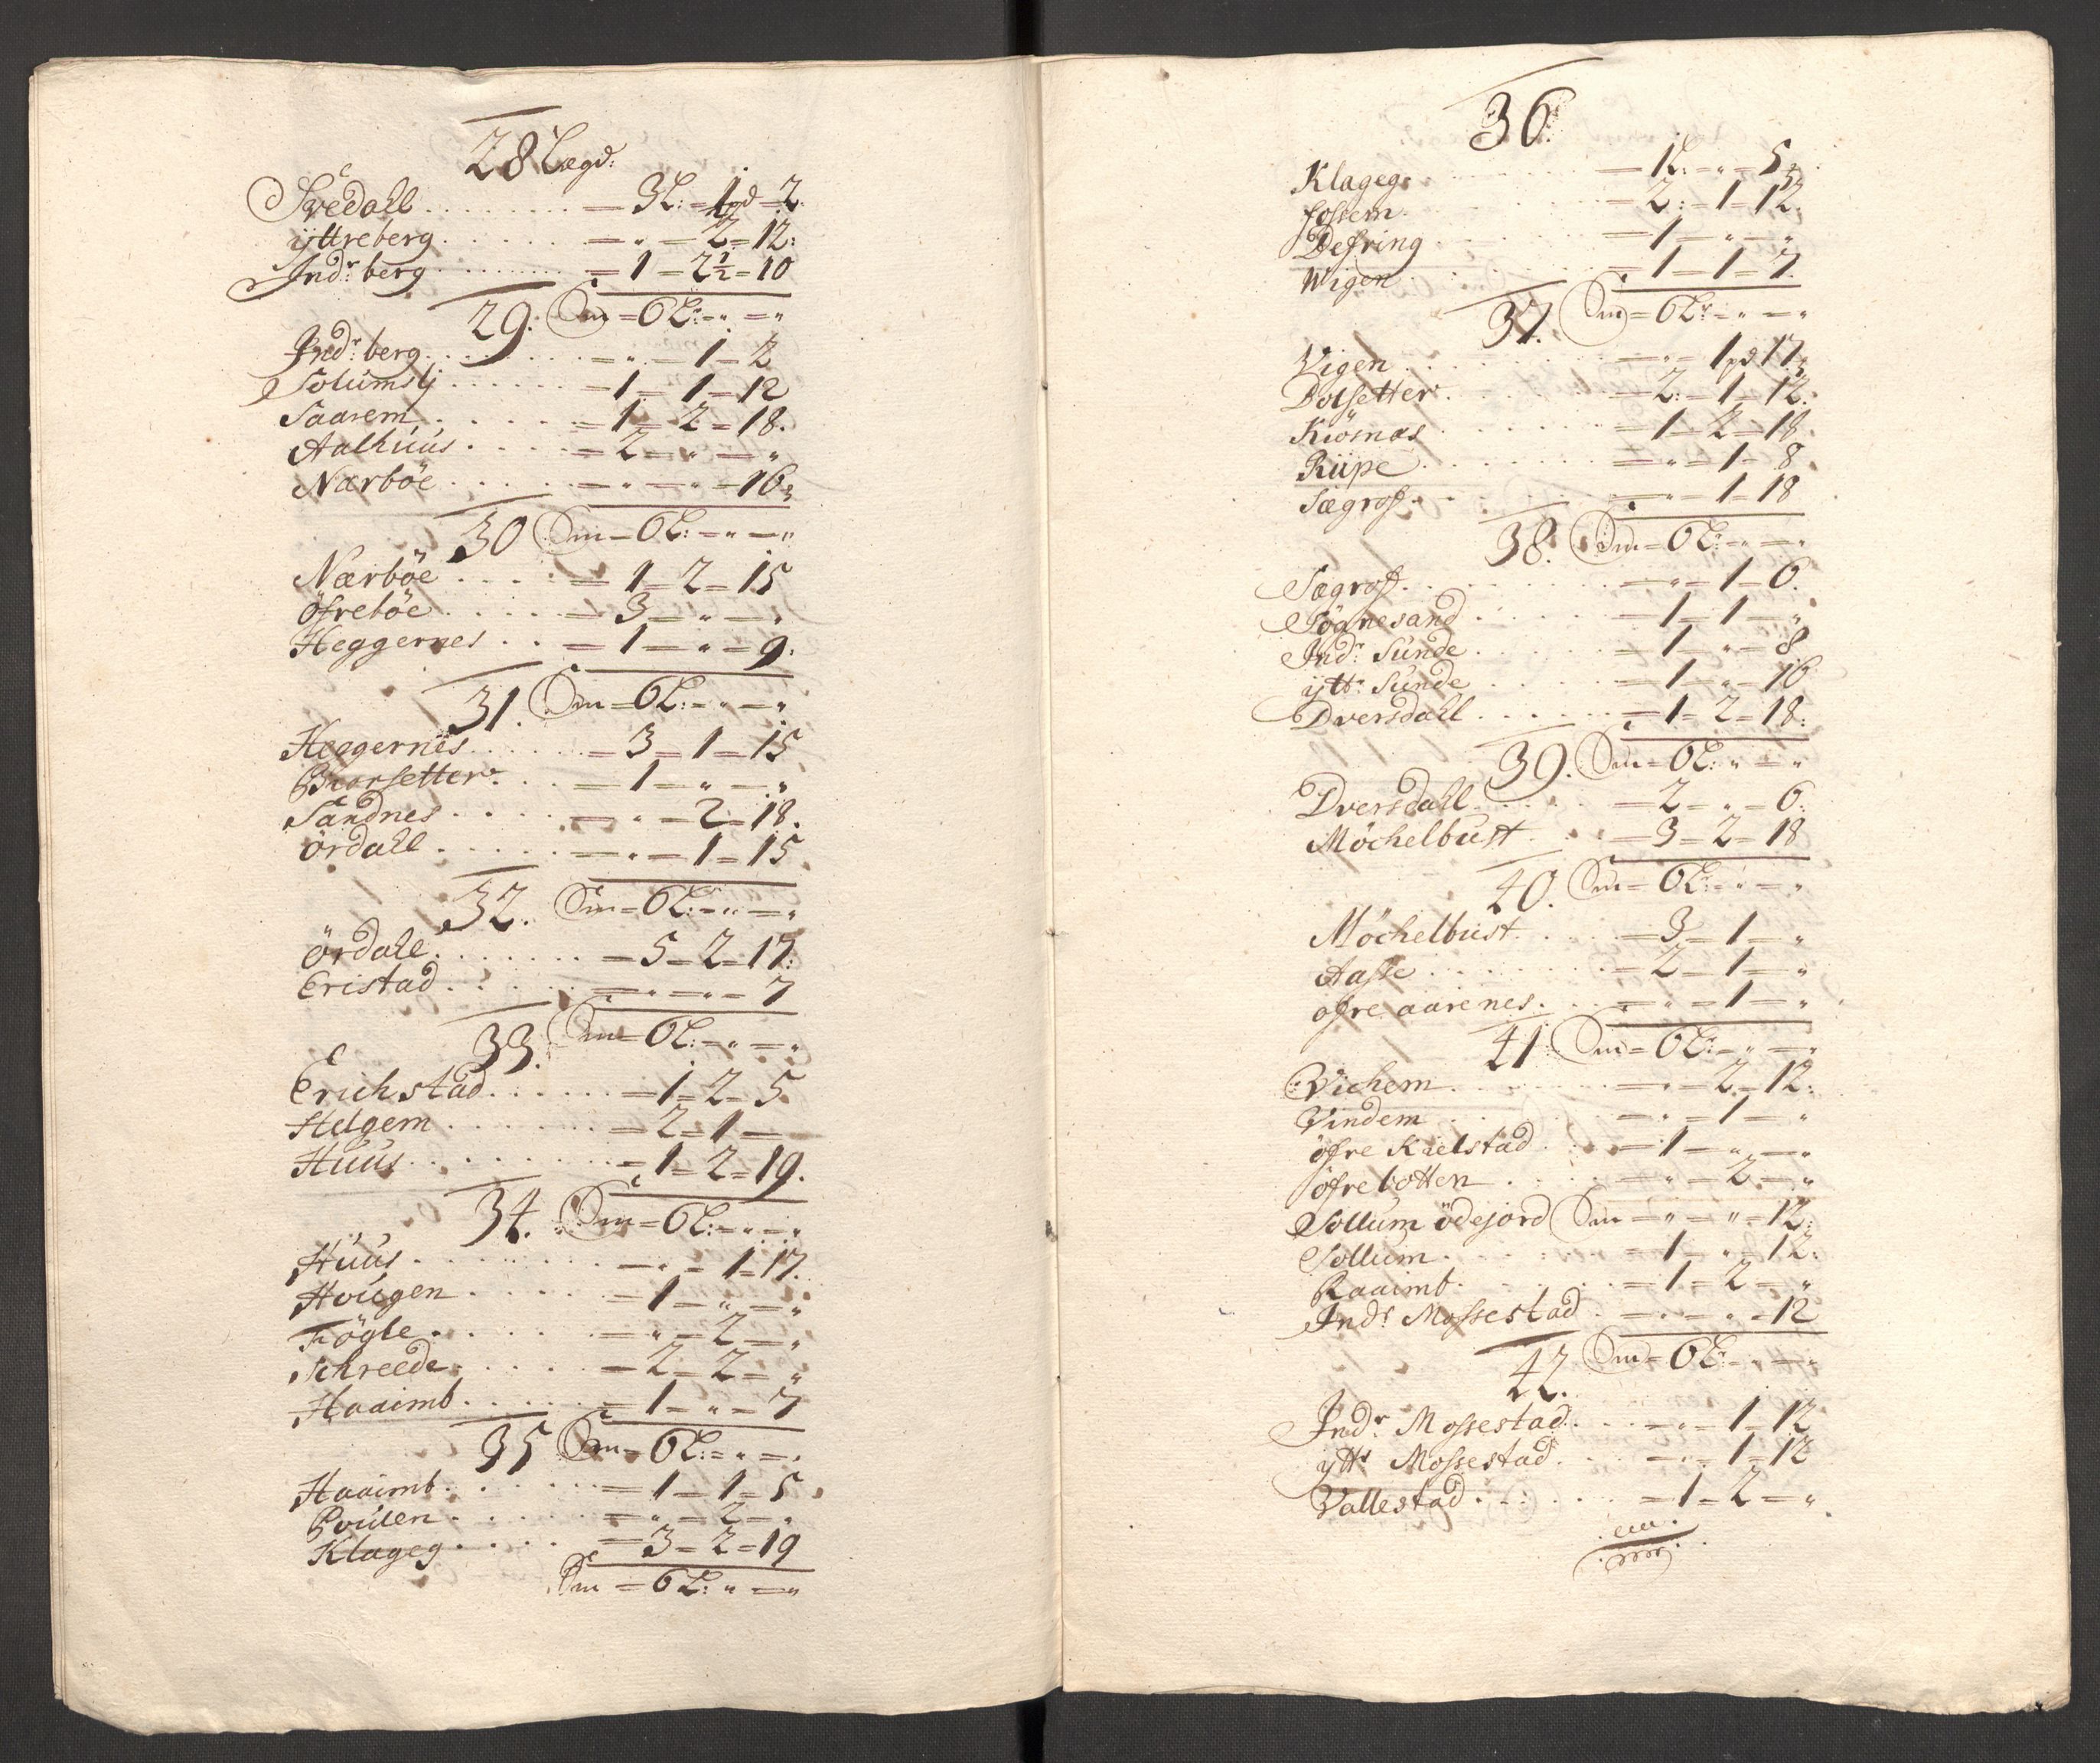 28 Lægd:
Svedall . . . . . . . = 3L: = 1pd = 2.
ÿttreberg . . . . . . = " = 2 = 12:
Indr: berg . . . . . . = 1 = 2½ = 10
29. Sm = 6L: = " = "
Indr: berg . . . . . . = " = 1 = 2
Solumslj . . . . . . = 1 = 1 = 12
Saarem . . . . . = 1 = 2 = 18.
Aalhuus . . . . = 2 = " = "
Nærböe . . . . . = " = " = 16:
30 Sm = 6L: = " = "
Nærböe . . . . = 1 = 2 = 15
öfreböe . . . . = 3 = " = "
Heggernes . . = 1 = " = 9:
31. Sm = 6L: = " = "
Heggernes . . . . . = 3 = 1 = 15
Biorsetter . . = 1 = " = "
Sandnes . . . . = " = 2 = 18.
ördall . . . . . = " = 1 = 15
32. Sm = 6L: = " = "
ördall . . . . . . . = 5 = 2 = 17:
Eristad . . . . . = " = " = 7
33. Sm = 6L: = " = "
Erichstad . . . . . = 1 = 2 = 5
Helgem . . . . . . = 2 = 1 =
Huus . . . . . . . = 1 = 2 = 19.
34. Sm = 6L: = " = "
Huus . . . . . . . . = " = 1 = 17.
Hougen . . . . . = 1 = " = "
Fögle . . . . . . = " = 2 = "
Schreede . . . . . = 2 = 2 = "
Haaimb . . . . . = 1 = " = 7
35 Sm = 6L: = " = "
Haaimb . . . . . = 1 = 1 = 5
Poulen . . . . . . = " = 2 = "
Klageg . . . . . = 3 = 2 = 19
Sm = 6L: " = "
36.
Klageg . . . . . . = 1L: = " = 5
fossem . . . . . . = 2: = 1 = 12.
Defring . . . . . . = 1 = " = "
Wigen . . . . . . = 1 = 1 = 7.
37. Sm = 6L: = " = "
Vigen . . . . . . . = " = 1pd 17
Dolsetter . . . . . . = 2: = 1 = 12:
Kiösnas . . . . . . = 1 = 2 = 18
Riipe . . . . . . . = " = 1 = 8
Sægrof . . . . . . = " = 1 = 18
38. Sm = 6L: = " = "
Sægrof . . . . . . . = " = 1 = 6.
Sögnesand . . . . . = 1 = 1 = "
Indr: Sunde . . . . . = 1 = " = 8
ytt: Sunde . . . . . = 1 = " = 16
Dversdall . . . . . = 1 = 2 = 18:
39. Sm = 6L: " = "
Dversdall . . . . . = 2 = " = 6:
Möchelbust . . . = 3 = 2 = 18
40. Sm = 6L: = " = "
Möchelbust . . . . = 3 = 1 = "
Aasse . . . . . . . = 2 = 1 = "
ofre aarenes . . . = " = 1 = "
41: Sm = 6L: = " = "
Vichem . . . . . . = " = 2 = 12:
Vindem . . . . . . = " = 1 = "
öfre Kielstad . . . = 1 = " = "
öfrebotten . . . . = " = 2 = "
Sollum ödejord Sm = " = " = 12:
Sollum . . . . . . = 1 = " = 12:
Raaimb . . . . . . = 1 = 2 = "
Indr: Mossestad . = " = " = 12
42. Sm = 6L: = " = "
Indr: Mossestad . . . = " = 1 = 12
ytt: Mossestad . . . = " = 1 = 12
Vallestad . . . . . . = 1 = 2 = "